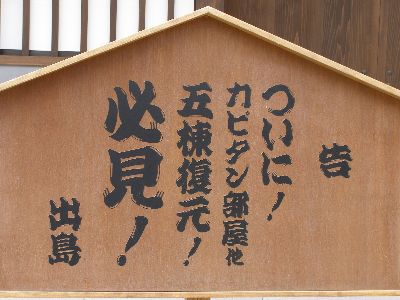 告
ついに!
カピタン部屋他
五棟復元!
必見!
出島